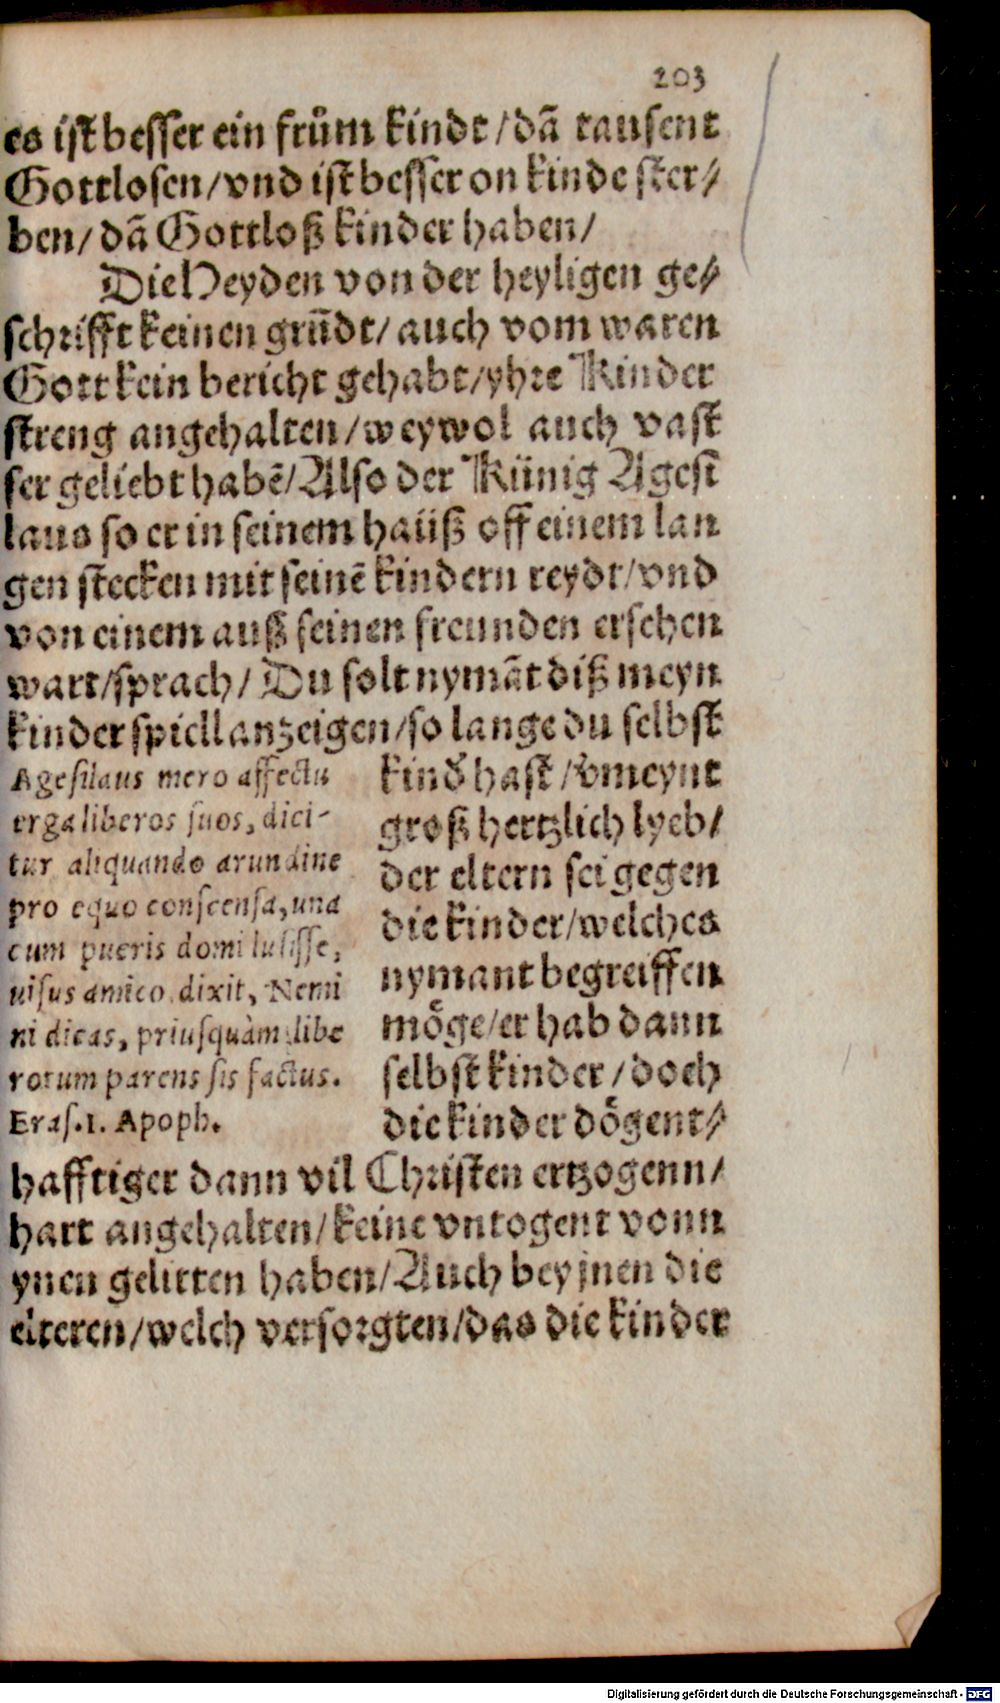 203
es ist besser ein frům kindt / dã tausent
Gottlosen / vnd ist besser on kinde ster⸗
ben / dã Gottloß kinder haben /
Die Heyden von der heyligen ge⸗
schrifft keinen grũdt / auch vom waren
Gott kein bericht gehabt / yhre Kinder
streng angehalten / weywol auch vast
ser geliebt habẽ / Also der Künig Agesi
laus so er in seinem hauß off einem lan
gen stecken mit seinẽ kindern reydt / vnd
von einem auß seinen freunden ersehen
wart / sprach / Du solt nymãt diß meyn
kinder spiell anzeigen / so lange du selbst
Agesilaus mero affectu
erga liberos suos, dici-
tur aliquando arundine
pro equo conscensa, una
cum pueris domi lusisse,
uisus amico dixit, Nemi
ni dicas, priusquàm libe
rorum parens sis factus.
Eras. 1. Apoph.
kind hast / vmeynt
groß hertzlich lyeb /
der eltern sei gegen
die kinder / welches
nymant begreiffen
möge / er hab dann
selbst kinder / doch
die kinder dögent⸗
hafftiger dann vil Christen ertzogenn /
hart angehalten / keine vntogent vonn
ynen gelitten haben / Auch bey jnen die
elteren / welch versorgten / das die kinder
Digitalisierung gefördert durch die Deutsche Forschungsgemeinschaft - DFG